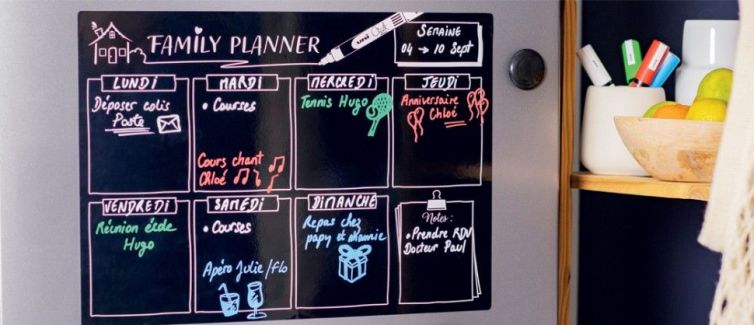 FAMILY PLANNER
uni Chalk
SEMAINE
04 → 10 Sept
LUNDI
Déposer colis
Poste
MARDI
• Courses
Cours chant
Chloé
MERCREDI
Tennis Hugo
JEUDI
Anniversaire
Chloé
VENDREDI
Réunion école
Hugo
SAMEDI
• Courses
Apéro Julie/Flo
DIMANCHE
Repas chez
papy et mamie
Notes:
• Prendre RDV
Docteur Paul
uni